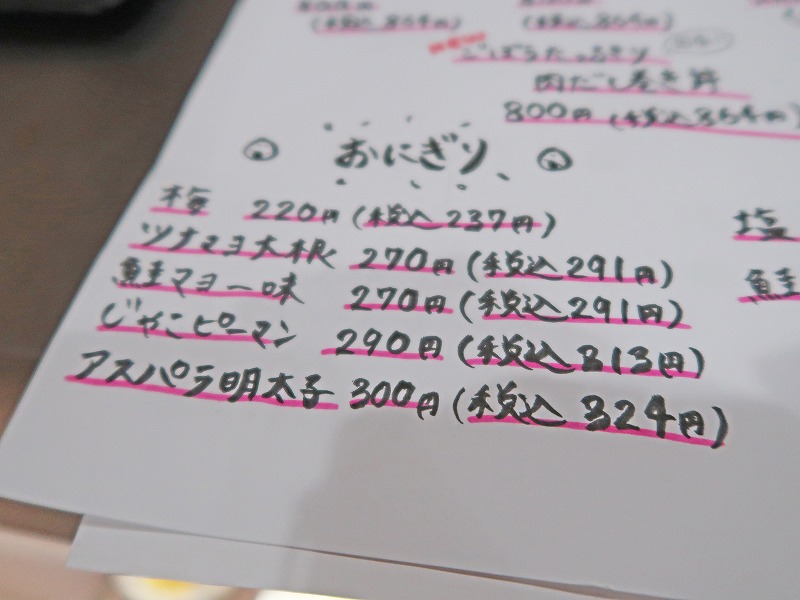 (税込864円) (税込864円)
ごぼうたっぷり
肉だし巻き弁
800円(税込864円)
おにぎり
梅 220円(税込237円) 塩
ツナマヨ大根 270円(税込291円) 鮭
鮭マヨ一味 270円(税込291円)
じゃこピーマン 290円(税込313円)
アスパラ明太子 300円(税込324円)